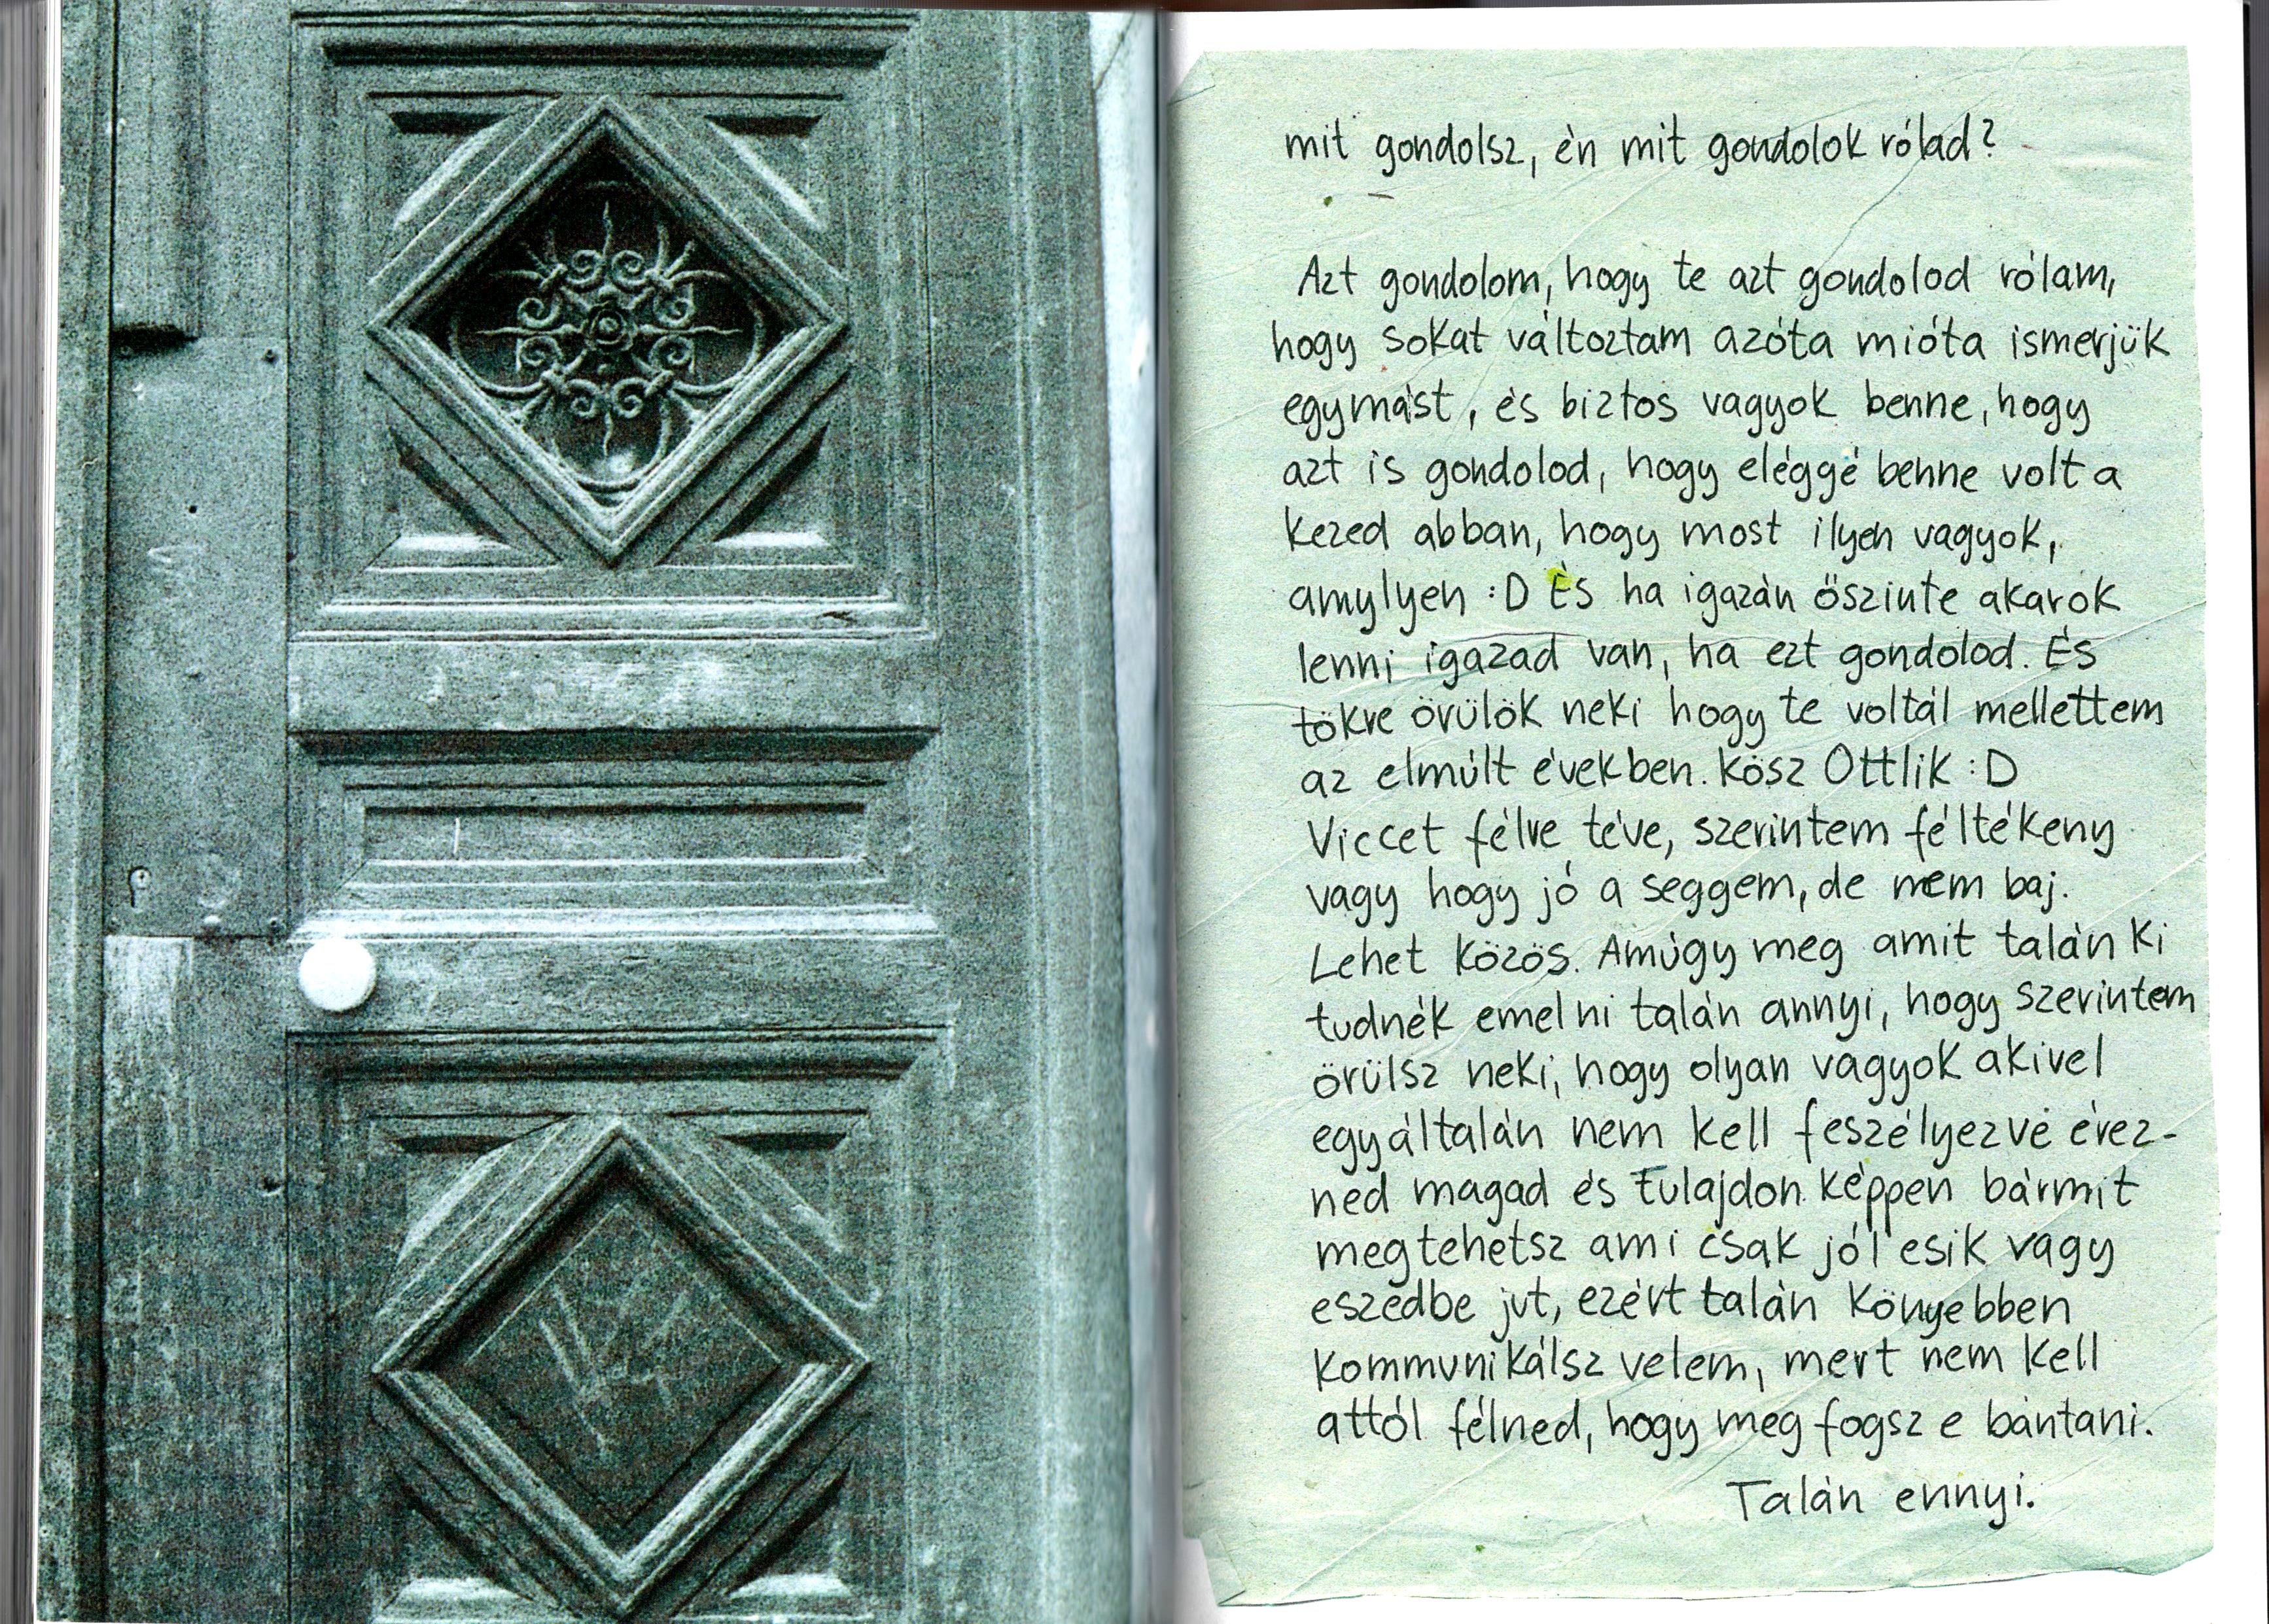 mit gondolsz, én mit gondolok rólad?
Azt gondolom, hogy te azt gondolod rólam,
hogy sokat változtam azóta mióta ismerjük
egymást, és biztos vagyok benne, hogy
azt is gondolod, hogy eléggé benne volt a
kezed abban, hogy most ilyen vagyok,
amylyen :D És ha igazán őszinte akarok
lenni igazad van, ha ezt gondolod. És
tökre örülök neki hogy te voltál mellettem
az elmúlt években. Kösz Ottlik :D
Viccet félre téve, szerintem féltékeny
vagy hogy jó a seggem, de nem baj.
Lehet közös. Amúgy meg amit talán ki
tudnék emelni talán annyi, hogy szerintem
örülsz neki, hogy olyan vagyok akivel
egyáltalán nem kell feszélyezve érez-
ned magad és tulajdon képpen bármit
megtehetsz ami csak jól esik vagy
eszedbe jut, ezért talán könyebben
kommunikálsz velem, mert nem kell
attól félned, hogy meg fogsz e bántani.
Talán ennyi.